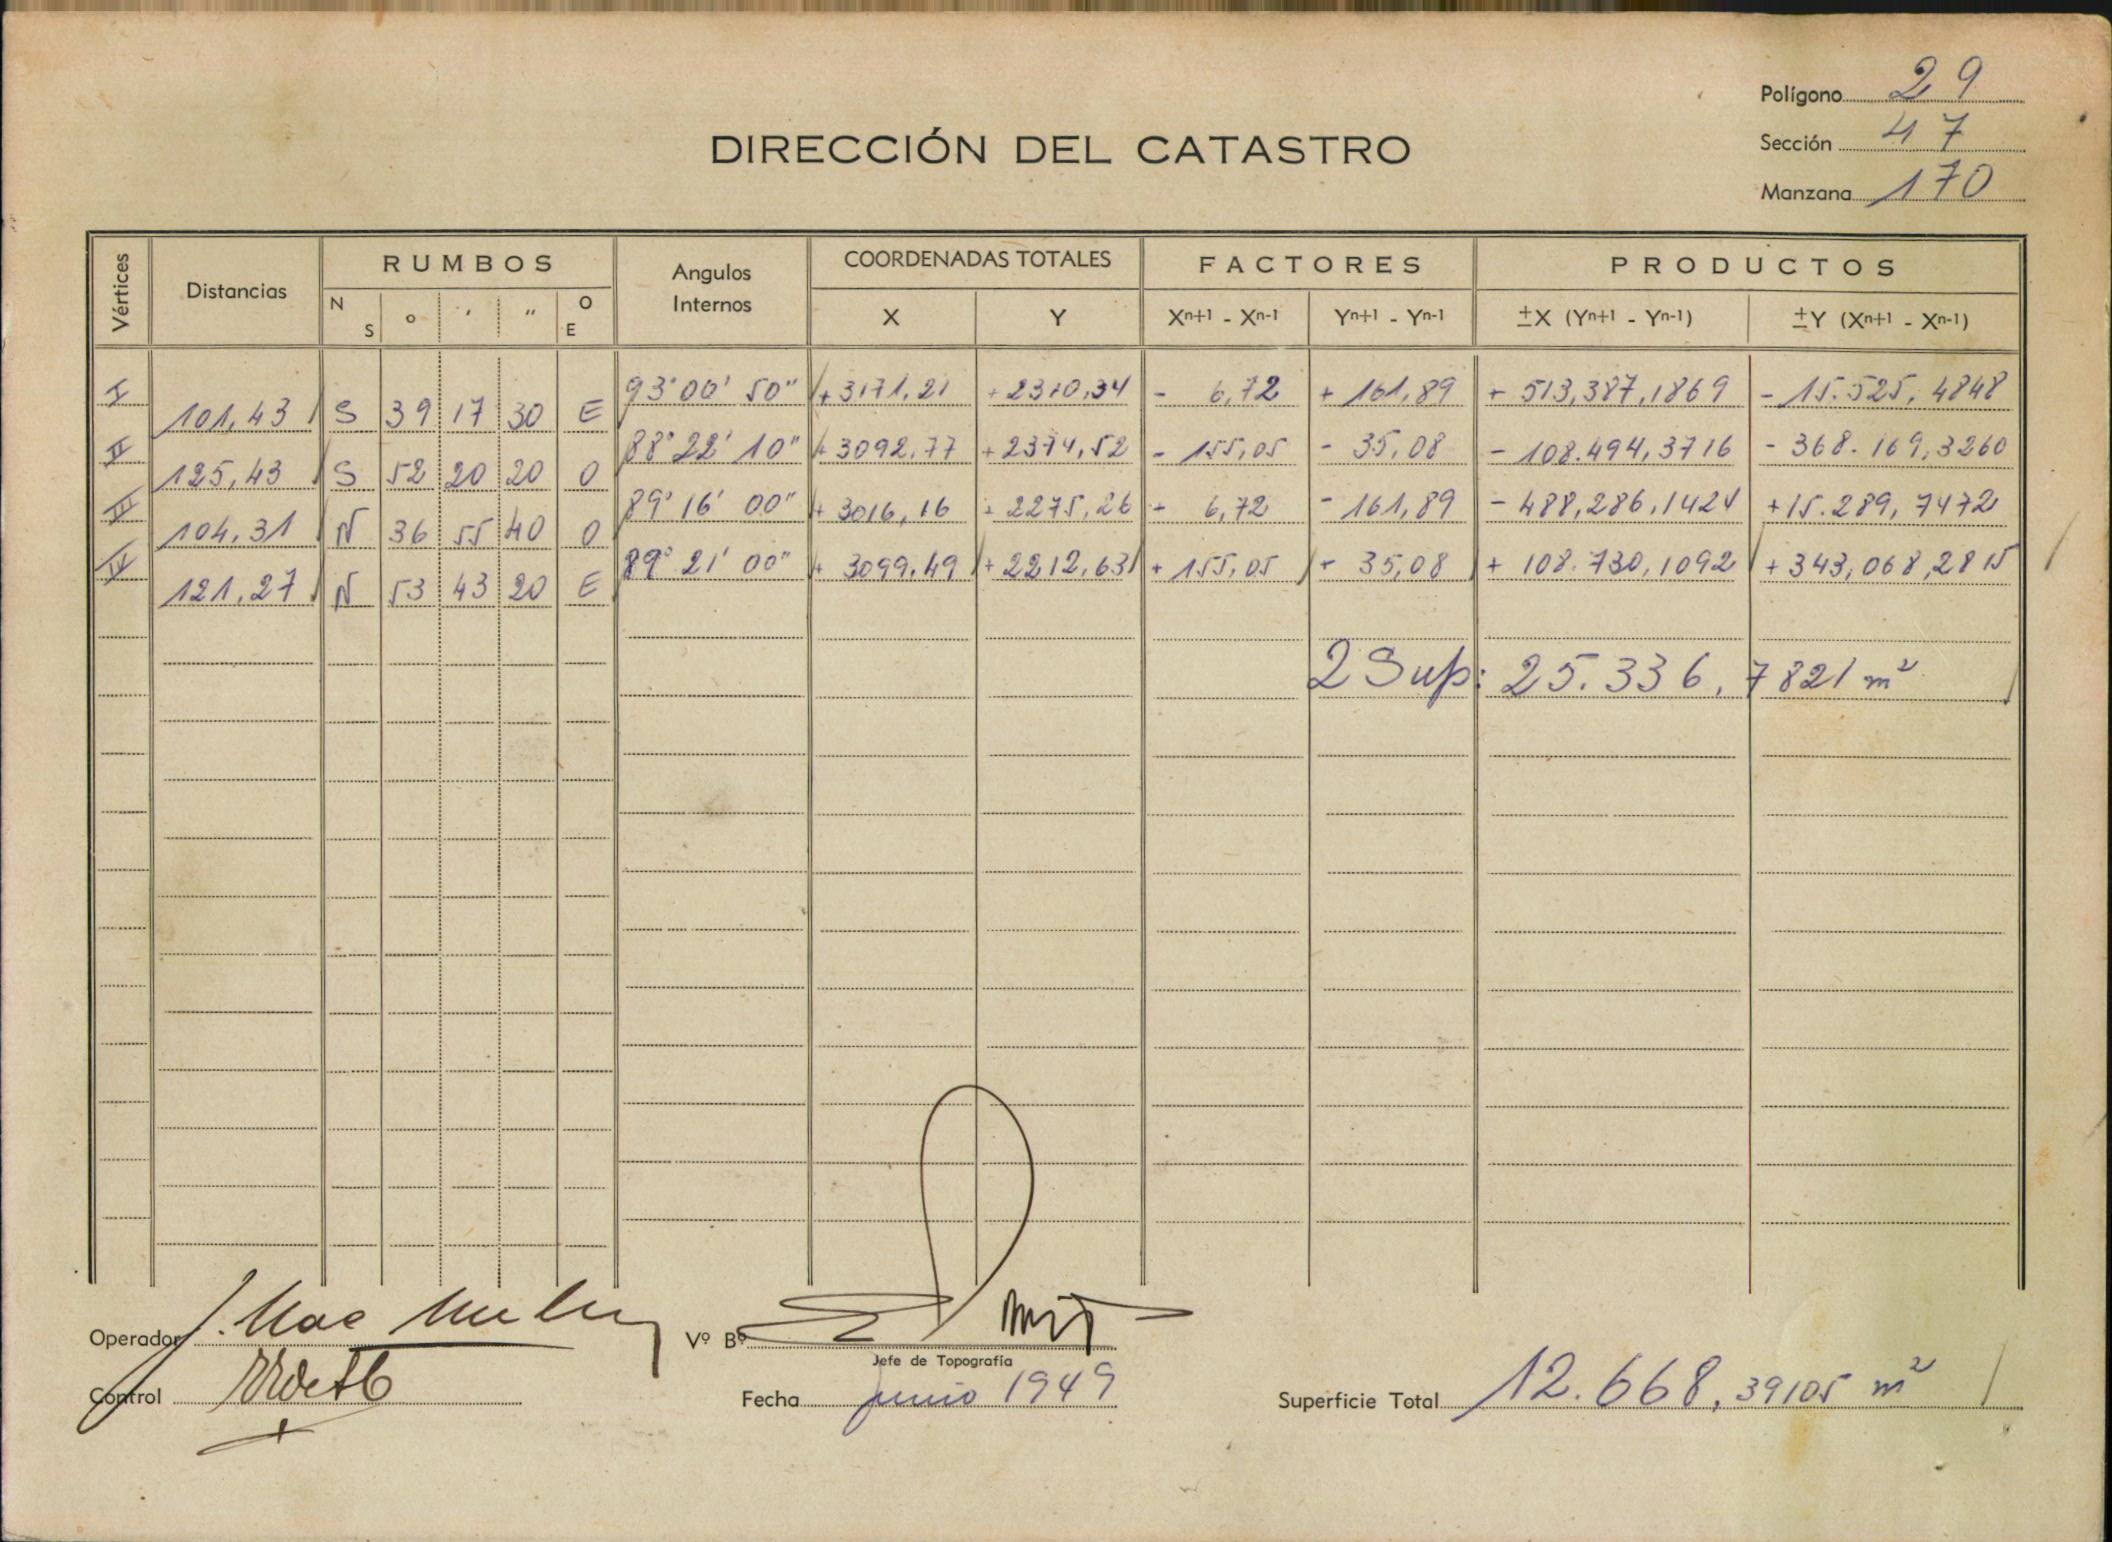 Polígono 29
DIRECCIÓN DEL CATASTRO
Sección 47
Manzana 170
Vértices Distancias RUMBOS Angulos Internos COORDENADAS TOTALES FACTORES PRODUCTOS
N S ° ' " O E X Y Xn+1 - Xn-1 Yn+1 - Yn-1 ±X (Yn+1 - Yn-1) ±Y (Xn+1 - Xn-1)
I 93° 00' 50" +3171,21 +2310,34 - 6,72 + 161,89 + 513,387,1869 - 15.525,4848
101,43 S 39 17 30 E
II 88° 22' 10" + 3092,77 + 2374,52 - 155,05 - 35,08 - 108.494,3716 - 368.169,3260
125,43 S 52 20 20 O
III 89° 16' 00" + 3016,16 + 2275,26 + 6,72 - 161,89 - 488,286,1424 +15.289,7472
104,31 N 36 55 40 O
IV 89° 21' 00" + 3099,49 + 2212,63 + 155,05 + 35,08 + 108.730,1092 + 343,068,2815
121,27 N 53 43 20 E
2 Sup: 25.336,7821 m²
Operador
Vº Bº
Jefe de Topografía
Control
Fecha junio 1949
Superficie Total 12.668,39105 m²